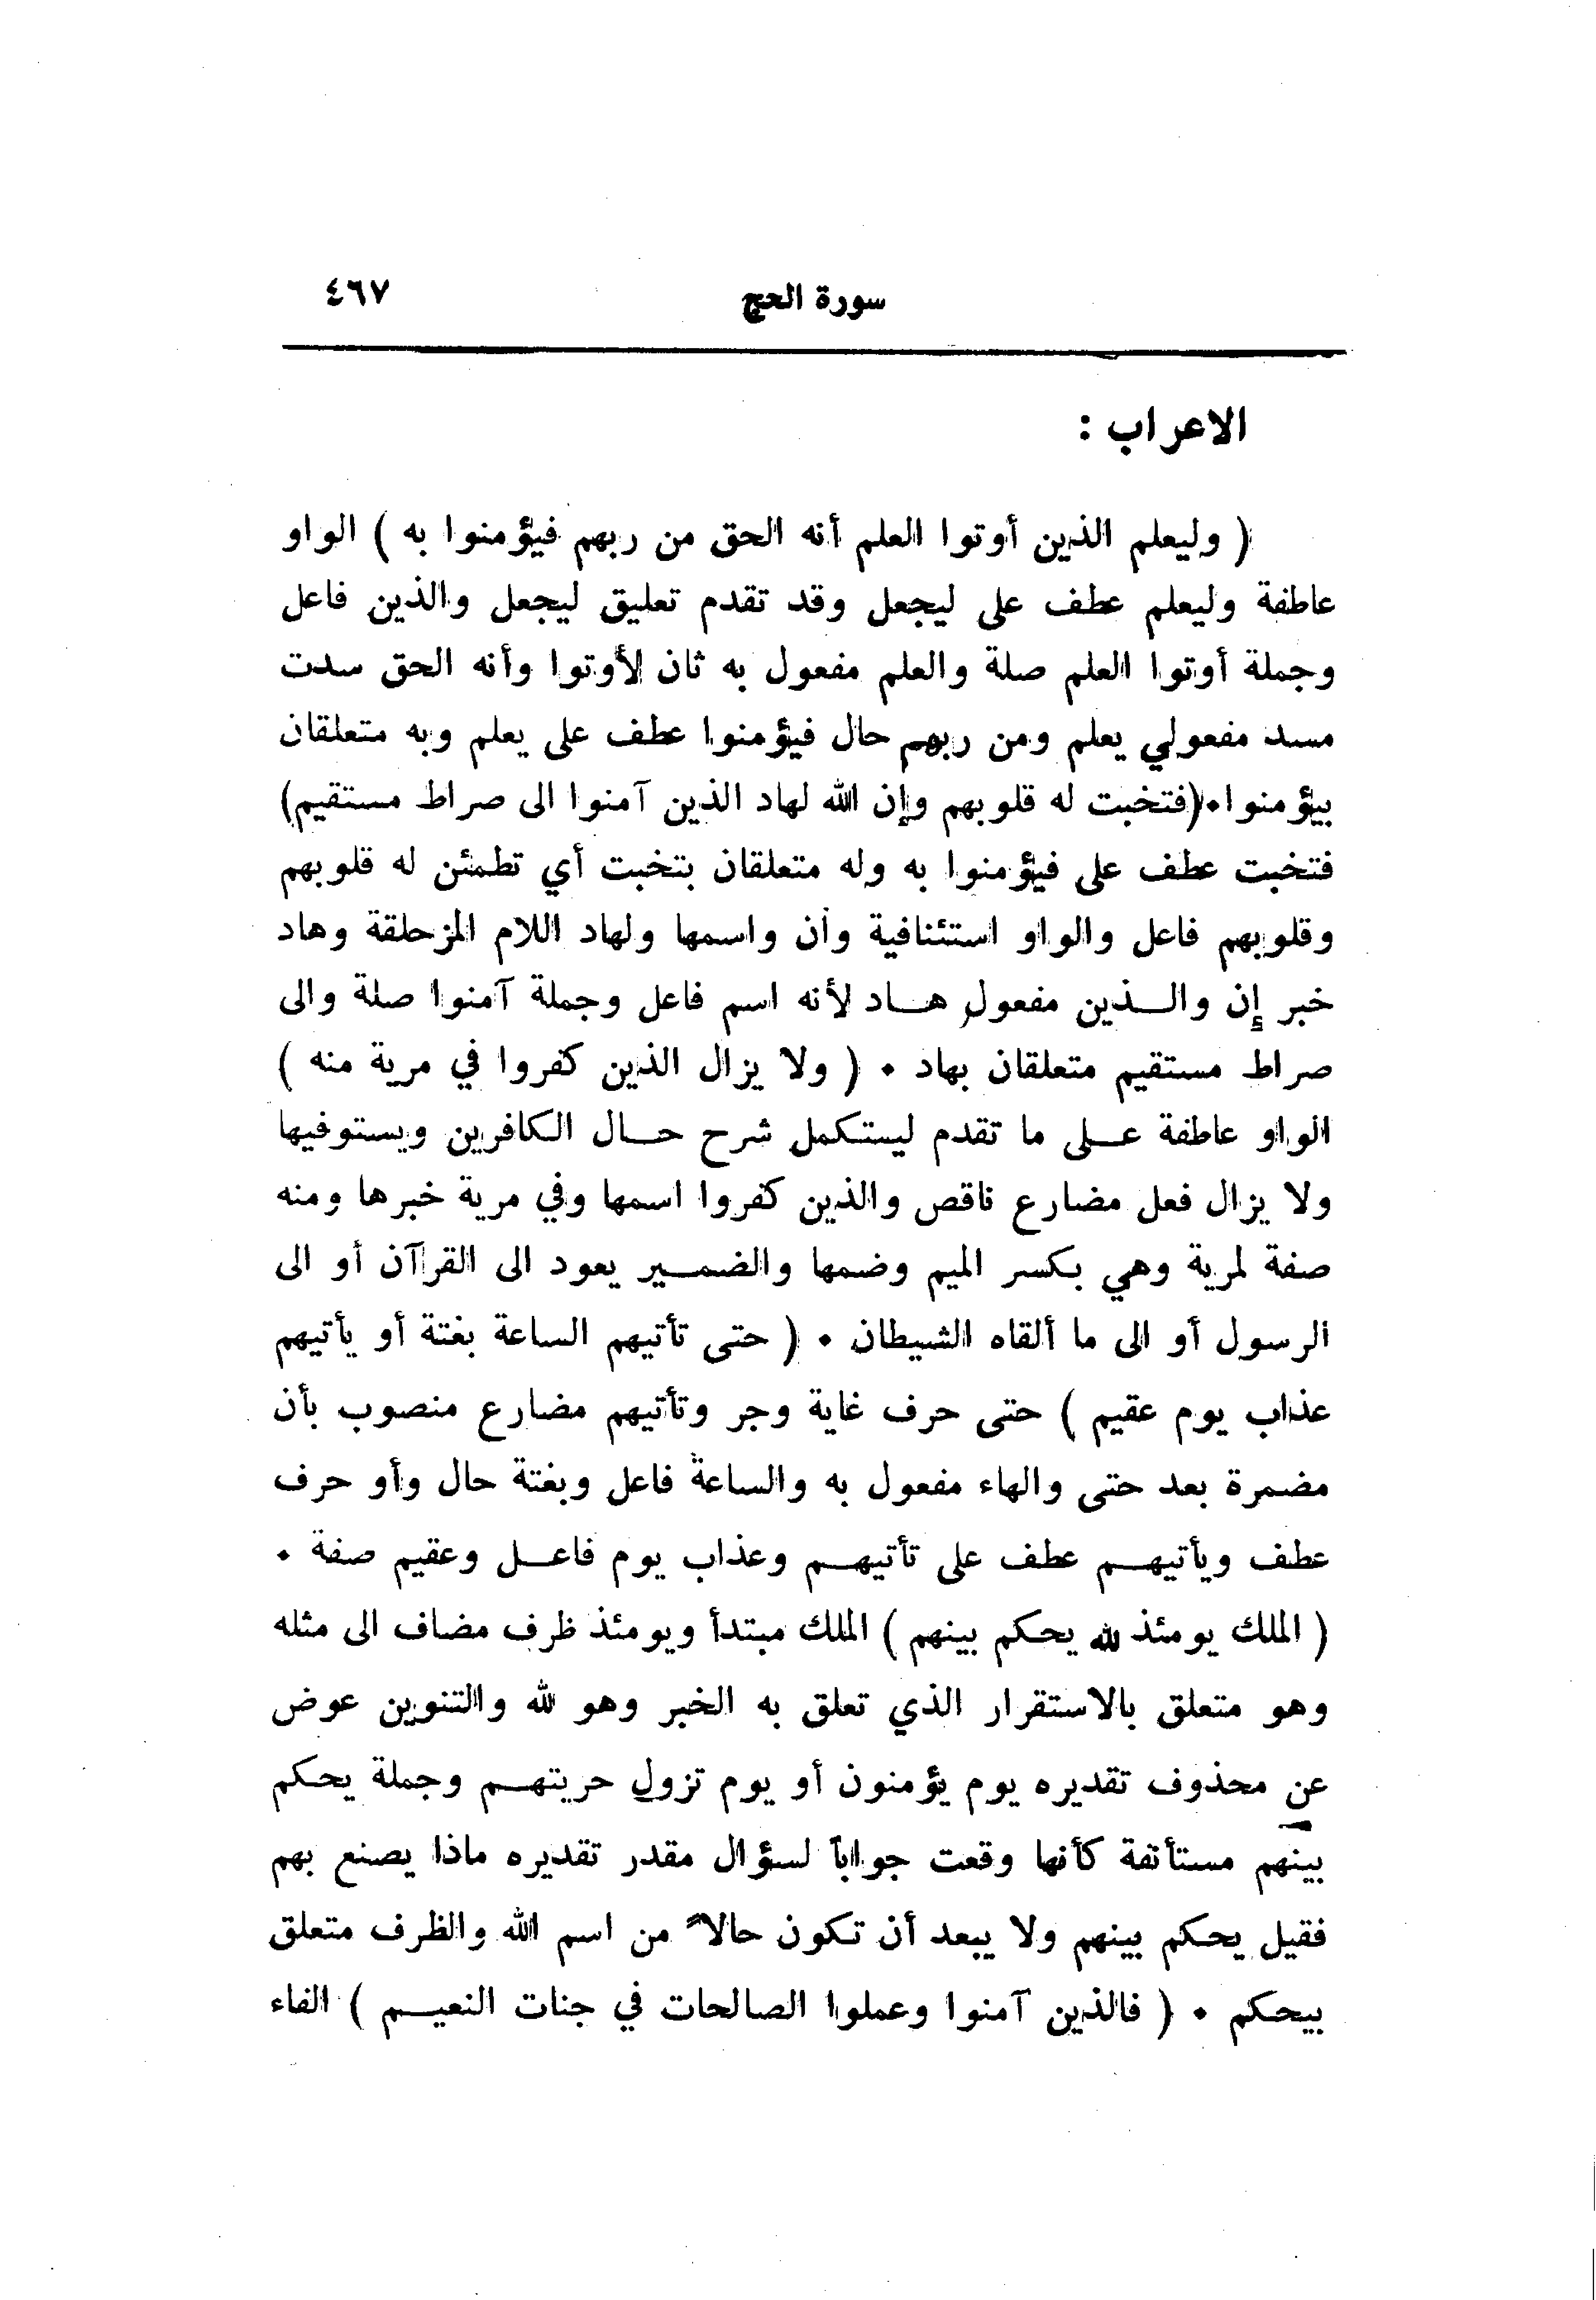 سورة الحج ٤٦٧
الاعراب :
( وليعلم الذين أوتوا العلم أنه الحق من ربهم فيؤمنوا به ) الواو
عاطفة وليعلم عطف على ليجعل وقد تقدم تعليق ليجعل والذين فاعل
وجملة أوتوا العلم صلة والعلم مفعول به ثان لأوتوا وأنه الحق سدت
مسد مفعولي يعلم ومن ربهم حال فيؤمنوا عطف على يعلم وبه متعلقان
بيؤمنوا٠(فتخبت له قلوبهم وإن الله لهاد الذين آمنوا الى صراط مستقيم)
فتخبت عطف على فيؤمنوا به وله متعلقان بتخبت أي تطمئن له قلوبهم
وقلوبهم فاعل والواو استئنافية وأن واسمها ولهاد اللام المزحلقة وهاد
خبر إن والـــذين مفعول هـــاد لأنه اسم فاعل وجملة آمنوا صلة والى
صراط مستقيم متعلقان بهاد ٠ ( ولا يزال الذين كفروا في مرية منه )
الواو عاطفة عـــلى ما تقدم ليستكمل شرح حـــال الكافرين ويستوفيها
ولا يزال فعل مضارع ناقص والذين كفروا اسمها وفي مرية خبرها ومنه
صفة لمرية وهي بكسر الميم وضمها والضمـــير يعود الى القرآن أو الى
الرسول أو الى ما ألقاه الشيطان ٠ ( حتى تأتيهم الساعة بغتة أو يأتيهم
عذاب يوم عقيم ) حتى حرف غاية وجر وتأتيهم مضارع منصوب بأن
مضمرة بعد حتى والهاء مفعول به والساعة فاعل وبغتة حال وأو حرف
عطف ويأتيهـــم عطف على تأتيهـــم وعذاب يوم فاعـــل وعقيم صفة ٠
( الملك يومئذ لله يحكم بينهم ) الملك مبتدأ ويومئذ ظرف مضاف الى مثله
وهو متعلق بالاستقرار الذي تعلق به الخبر وهو لله والتنوين عوض
عن محذوف تقديره يوم يؤمنون أو يوم تزول حريتهـــم وجملة يحكم
بينهم مستأنفة كأنها وقعت جواباً لسؤال مقدر تقديره ماذا يصنع بهم
فقيل يحكم بينهم ولا يبعد أن تكون حالاً من اسم الله والظرف متعلق
بيحكم ٠ ( فالذين آمنوا وعملوا الصالحات في جنات النعيـــم ) الفاء